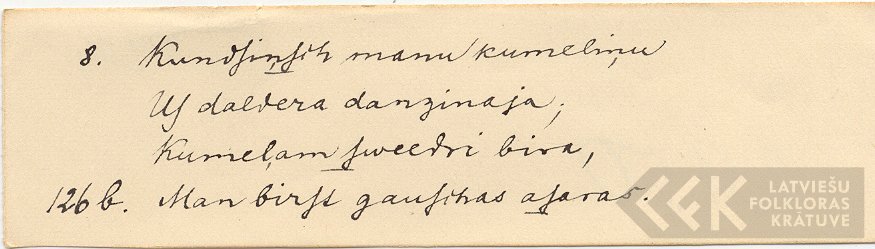 8. Kundſiņſch manu kumeliņu
Uſ daldera danzinaja;
Kumeļam ſweedri bira,
126 b. Man birſt gauſchas aſaras.
LATVIEŠU
FOLKLORAS
KRĀTUVE